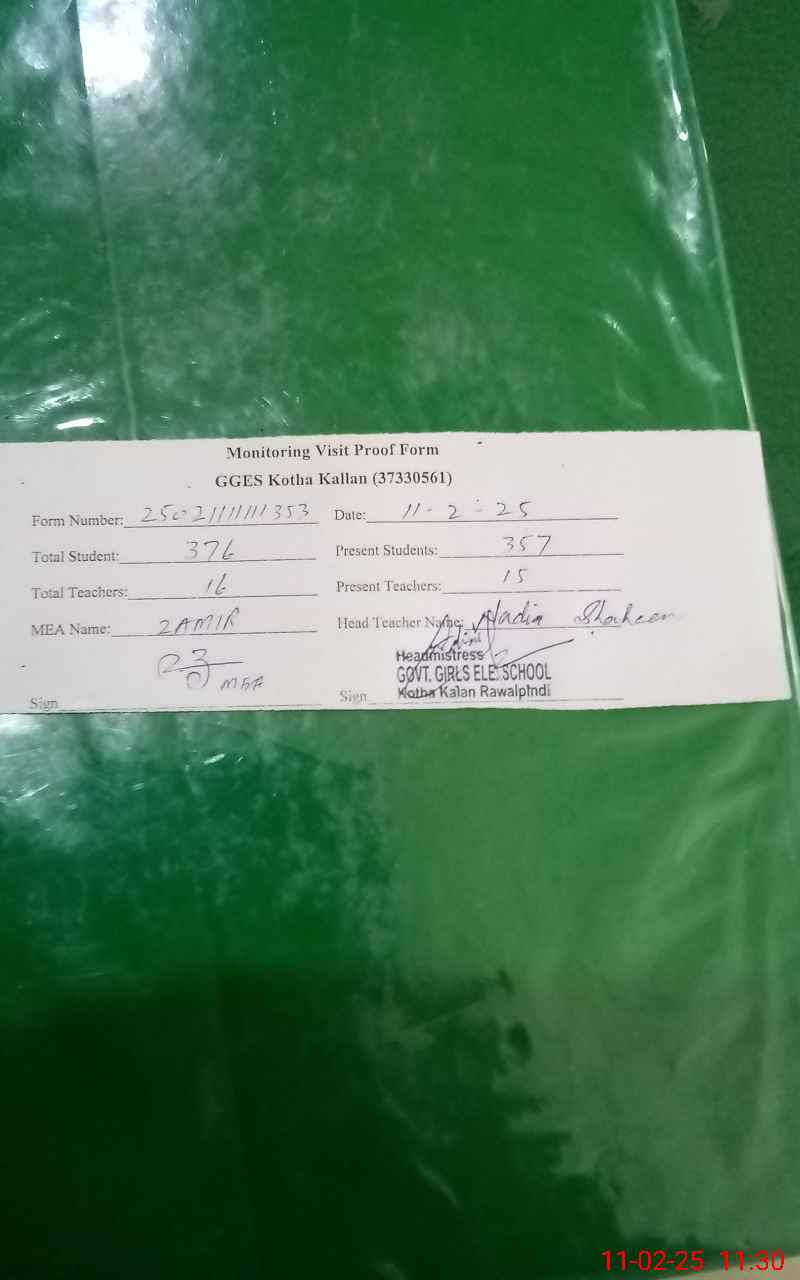 Monitoring Visit Proof Form
GGES Kotha Kallan (37330561)
Form Number: 25021111111353 Date: 11-2-25
Total Student: 376 Present Students: 357
Total Teachers: 16 Present Teachers: 15
MEA Name: ZAMIR Head Teacher Name: Nadia Shaheen
Headmistress
MEA GOVT. GIRLS ELE: SCHOOL
Sign Sign Kotha Kalan Rawalpindi
11-02-25 11:30